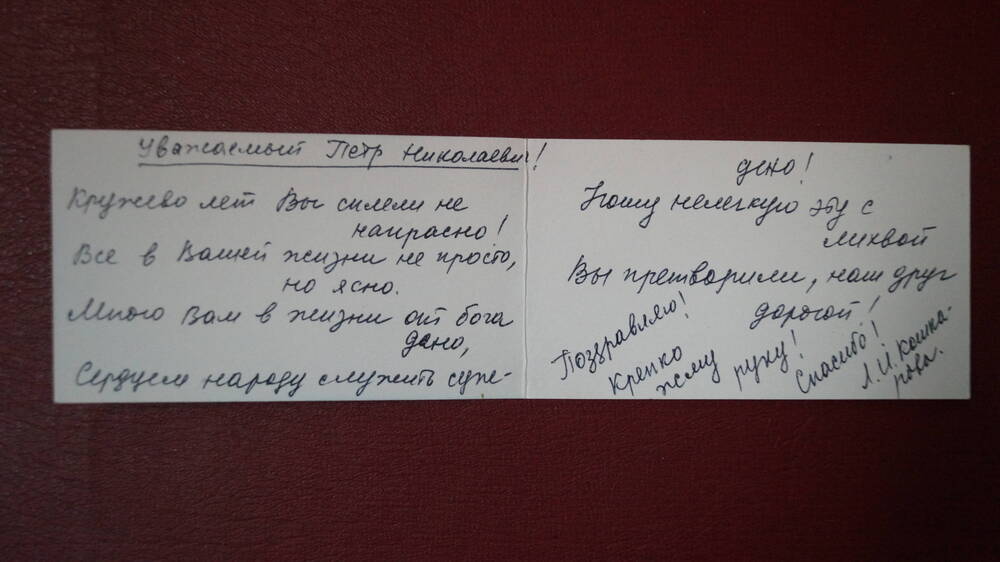 Уважаемый Петр Николаевич!
Кружево лет Вы сплели не
напрасно!
Все в Вашей жизни не просто,
но ясно.
Много Вам в жизни от бога
дано,
Сердцем народу служить суже-
дено!
Ношу нелегкую эту с
лихвой
Вы претворили, наш друг
дорогой!
Поздравляю!
Крепко
жму руку!
Спасибо!
Л. И. Кошка-
рова.